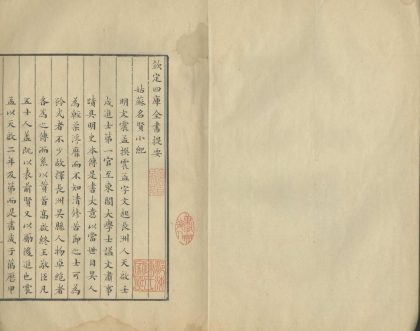 欽定四庫全書提要
姑蘇名賢小紀
明文震孟撰震孟字文起長洲人天啟壬
戌進士第一官至東閣大學士謚文肅事
蹟具明史本傳是書大意以當世目吳人
為輕柔浮靡而不知清修苦節之士可為
矜式者不少故擇長洲吳縣人物卓絕者
各為之傳而系以贊首高啟終王敬臣凡
五十人蓋既以表前賢又以勵後進也震
孟以天啟二年及第而是書成于萬歷甲